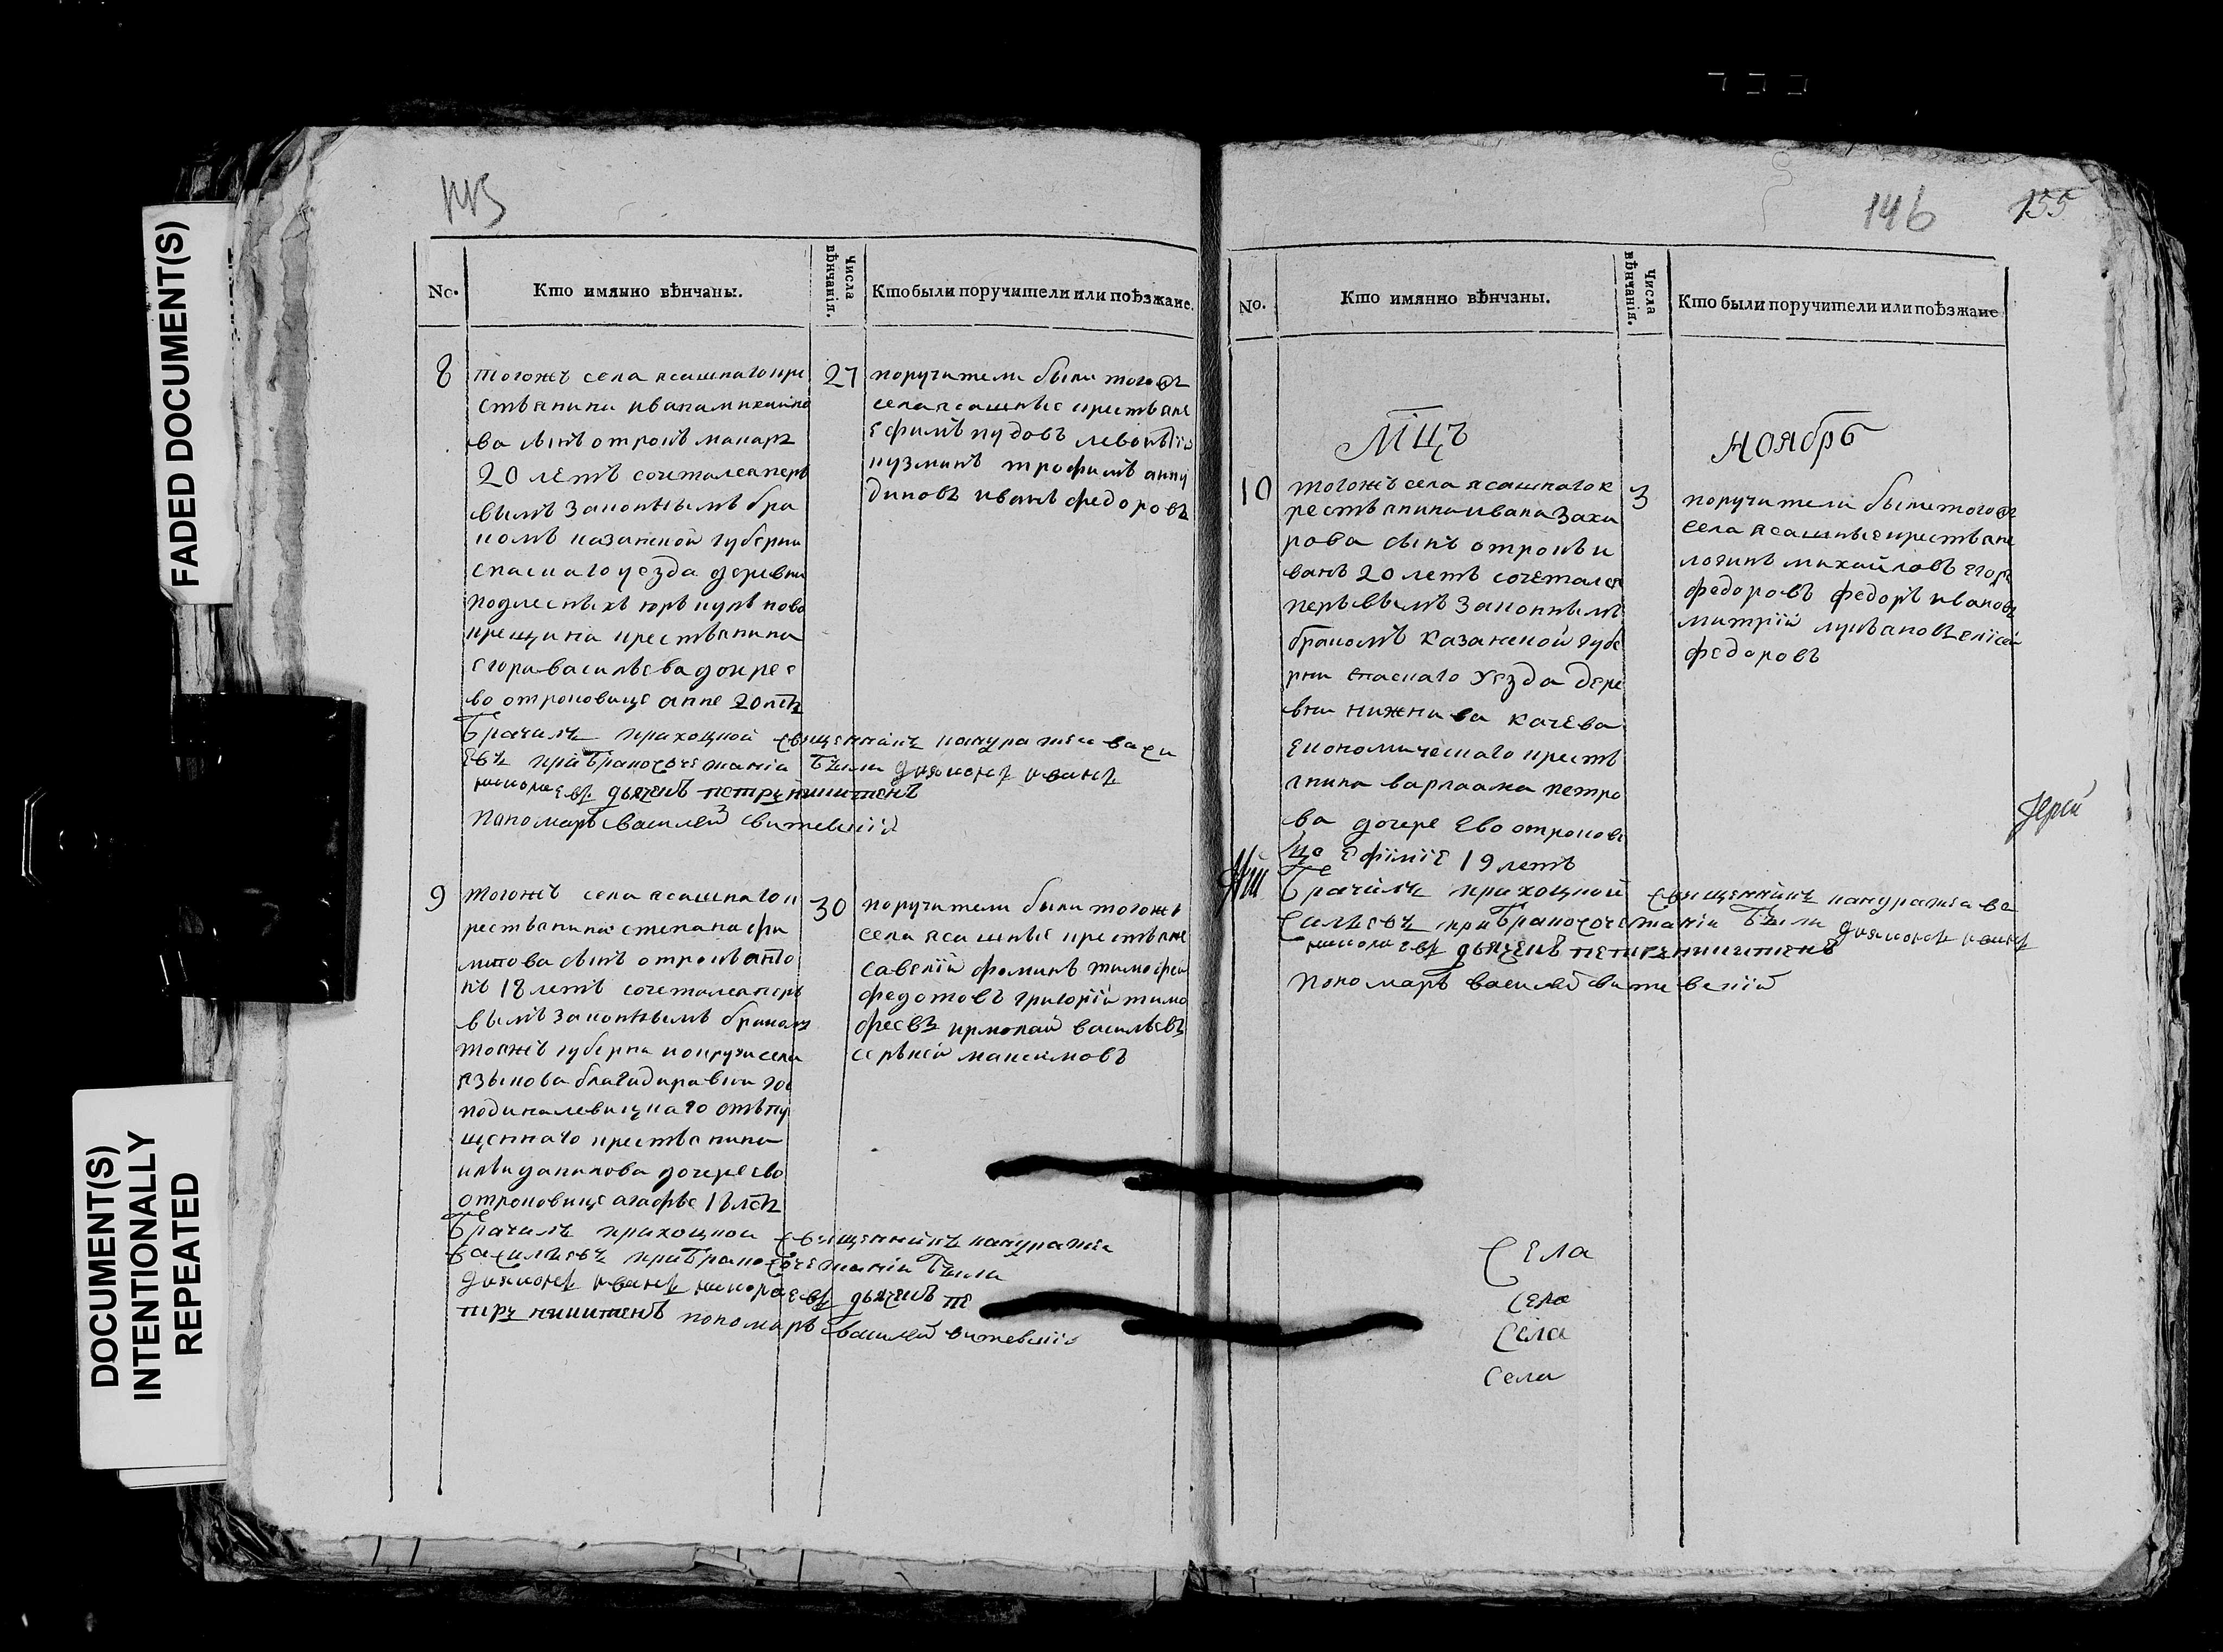 FADED DOCUMENT(S)
DOCUMENT(S)
INTENTIONALLY
REPEATED
146 155
No.
Кто имянно вѣнчаны.
Числа вѣнчанія.
Кто были поручители или поѣзжане.
8
тогожъ села ясашнаго кре
стьянина ивана михаило
ва сынъ отрокъ макаръ
20 летъ сочетался перъ
вымъ законнымъ бра
комъ казанской губерни
спаскаго уезда деревни
подлесныхъ
крещина крестьянина
егора васильева дочере е
во отроковице анне 20 летъ
27
поручители были тогожъ
села ясашные крестьяне
ефимъ пудовъ леонтїй
кузминъ трофимъ анки
диновъ иванъ федоровъ
Брачилъ приходной священникъ кандратеи васи
евъ при бракосочетанїи были диаконъ иванъ
николаевъ дьячекъ петръ никитенъ
Пономарь василей витевскїй
9
тогожъ села ясашнаго к
рестьянина степана фи
липова сынъ отрокъ анто
нъ 18 летъ сочетался перъ
вымъ законнымъ бракомъ
тоежъ губерни и округи села
языкова благадиравки гос
подина левицкаго отъпу
щеннаго крестьянина
ильи данилова дочере ево
отроковице агафье 18 летъ
30
поручители были тогожъ
села ясашные крестьяне
савелїй фоминъ тимофей
федотовъ григорїй тимо
феевъ ирмолай васильевъ
сергъей максимовъ
Брачилъ приходной священникъ кандратеи
васильевъ при бракосочетанїи были
диаконъ иванъ николаевъ дьячекъ пе
тръ никитенъ пономарь василей витевскїй
No.
Кто имянно вѣнчаны.
Числа вѣнчанія.
Кто были поручители или поѣзжане
Мцъ Ноябрь
10
тогожъ села ясашнаго к
рестьянина ивана заха
рова сынъ отрокъ и
ванъ 20 летъ сочетался
перьвымъ законнымъ
бракомъ казанской губе
рни спаскаго уезда дере
вни нижнива качева
економическаго кресть
янина варлаама петро
ва дочере ево отрокови
це ефїмїе 19 летъ
3
поручители были тогожъ
села ясашные крестьяне
логинъ михайловъ егоръ
федоровъ федоръ ивановъ
митрїй лукъановъ елїсей
федоровъ
Брачилъ приходной священникъ кандратеи ва
сильевъ при бракосочетанїи были диаконъ иванъ
николаевъ дьячекъ петръ никитенъ
пономарь василей витевскїй
Iерей
Села
села
Села
Села